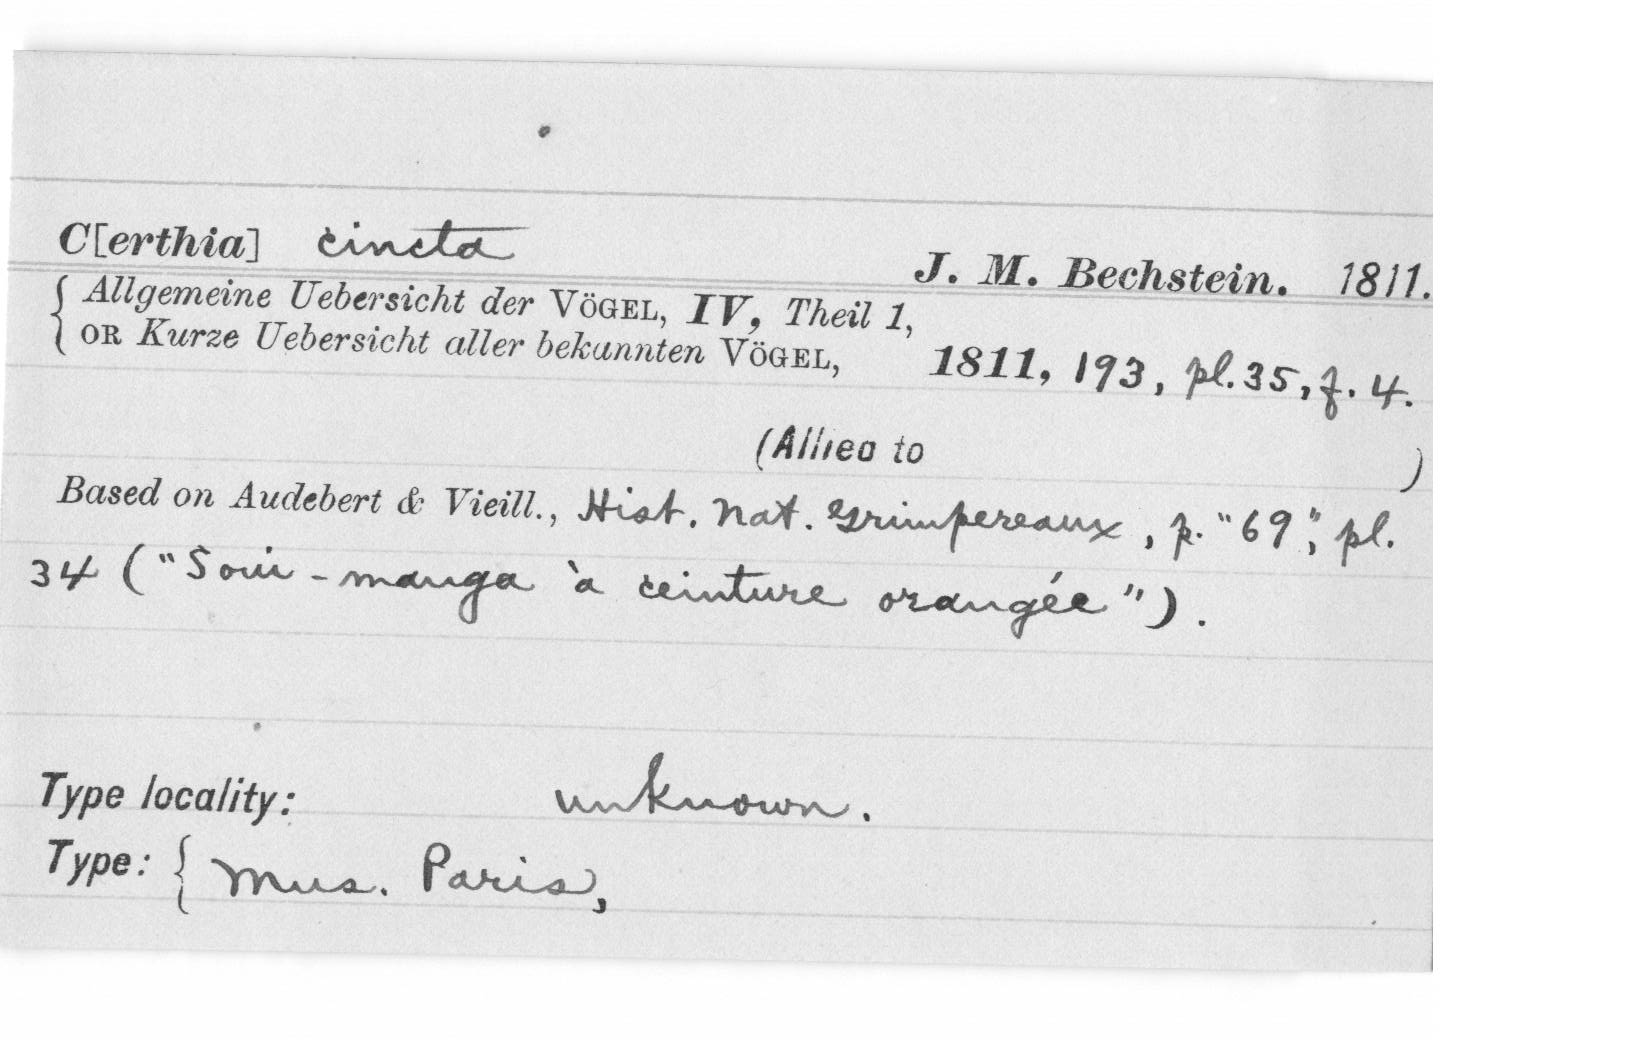 C[erthia] cincta
J. M. Bechstein. 1811.
{ Allgemeine Uebersicht der VÖGEL, IV, Theil 1,
OR Kurze Uebersicht aller bekannten VÖGEL, 1811, 193, pl. 35, f. 4.
(Allied to )
Based on Audebert & Vieill., Hist. Nat. Grimpereaux, p. "69", pl.
34 ("Soui-manga à ceinture orangée").
Type locality: unknown.
Type: { Mus. Paris,